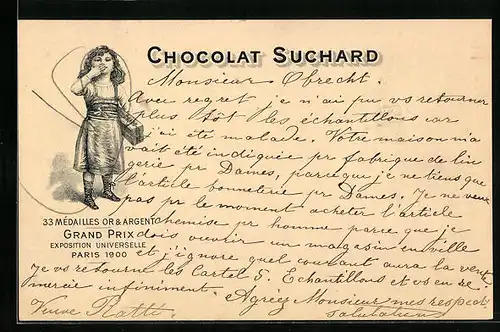 CHOCOLAT SUCHARD
Monsieur Obrecht.
Avec regret je n'ai pu vs retourner
plus tôt les échantillons car
j'ai été malade. Votre maison m'a
vait été indiquée pr fabrique de lin
gerie pr Dames, parce que je ne tiens que
l'article bonneterie pr Dames. Je ne veux
pas pr le moment acheter l'article
chemise pr homme parce que je
dois ouvrir un magasin en ville
et j'ignore quel courant aura la vente
Je vs retourne les Cartel 5. Echantillons et vs en re-
mercie infiniment. Agréez Monsieur mes respect
salutations
Veuve
33 MÉDAILLES OR & ARGENT
GRAND PRIX
EXPOSITION UNIVERSELLE
PARIS 1900